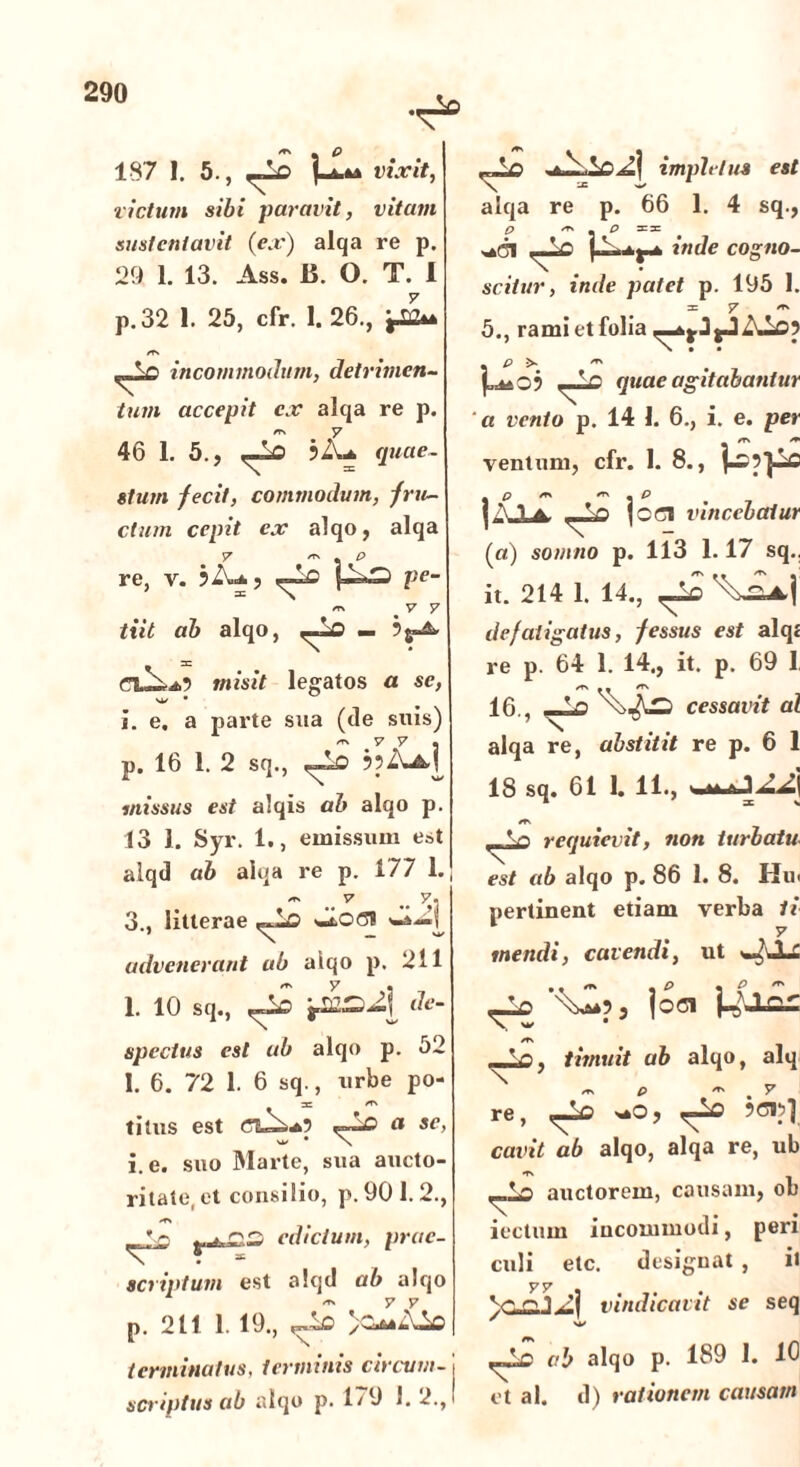 290
ܡܢ.
187 l. 5., ܚܝܐ ܡܢ vixit,
victum sibi paravit, vitam
sustentavit (ex) alqa re p.
29 l. 13. Ass. B. O. T. I
p.32 l. 25, cfr. l. 26., ܚܣܪ
ܡܢ incommodum, detrimen-
tum accepit ex alqa re p.
46 l. 5., ܝܬܪ ܡܢ quae-
stum fecit, commodum, fru-
ctum cepit ex alqo, alqa
re, v. ܝܬܪ, ܒܥܐ ܡܢ pe-
tiit ab alqo, ܫܕܪ — ܡܢ
ܕܝܠܗ misit legatos a se,
i. e. a parte sua (de suis)
p. 16 l. 2 sq., ܐܫܬܕܪ ܡܢ
missus est alqis ab alqo p.
13 l. Syr. 1., emissum est
alqd ab alqa re p. 177 l.
3., litterae ܐܬܝ ܗܘܝ ܡܢ
advenerant ab alqo p. 211
l. 10 sq., ܐܬܒܣܪ ܡܢ de-
spectus est ab alqo p. 52
l. 6. 72 l. 6 sq., urbe po-
titus est ܡܢ ܕܝܠܗ a se,
i. e. suo Marte, sua aucto-
ritate, et consilio, p. 90 l. 2.,
ܦܩܝܕ ܡܢ edictum, prae-
scriptum est alqd ab alqo
p. 211 l. 19., ܡܢ
terminatus, terminis circum-
scriptus ab alqo p. 179 l. 2.,
ܐܬܡܠܝ ܡܢ impletus est
alqa re p. 66 l. 4 sq.,
ܝܕܝܥܐ ܡܢ ܗܝ inde cogno-
scitur, inde patet p. 195 l.
5., rami et folia ܕܡܬܢܕܢܕܝܢ
ܡܢ ܪܘܚܐ quae agitabantur
a vento p. 14 l. 6., i. e. per
ventum, cfr. l. 8., ܡܙܕܟܐ
ܗܘܐ ܡܢ ܫܢܬܐ vincebatur
(a) somno p. 113 l. 17 sq.,
it. 214 l. 14., ܡܢ
defatigatus, fessus est alqa
re p. 64 l. 14., it. p. 69 l.
16., ܒܛܠ ܡܢ cessavit al
alqa re, abstitit re p. 6 l
18 sq. 61 l. 11., ܐܬܬܢܝܚ
ܡܢ requievit, non turbatu
est ab alqo p. 86 l. 8. Hu
pertinent etiam verba ti
mendi, cavendi, ut ܩܢܛ
ܡܢ, ܕܚܠ, ܗܘܐ
ܡܢ, timuit ab alqo, alq
re, ܘܝ ܡܢ, ܐܙܕܗܪ ܡܢ
cavit ab alqo, alqa re, ub
ܡܢ auctorem, causam, ob
iectum incommodi, peri
culi etc. designat, it
ܐܬܢܩܡ vindicavit se seq
ܡܢ ab alqo p. 189 l. 10
et al. d) rationem causam